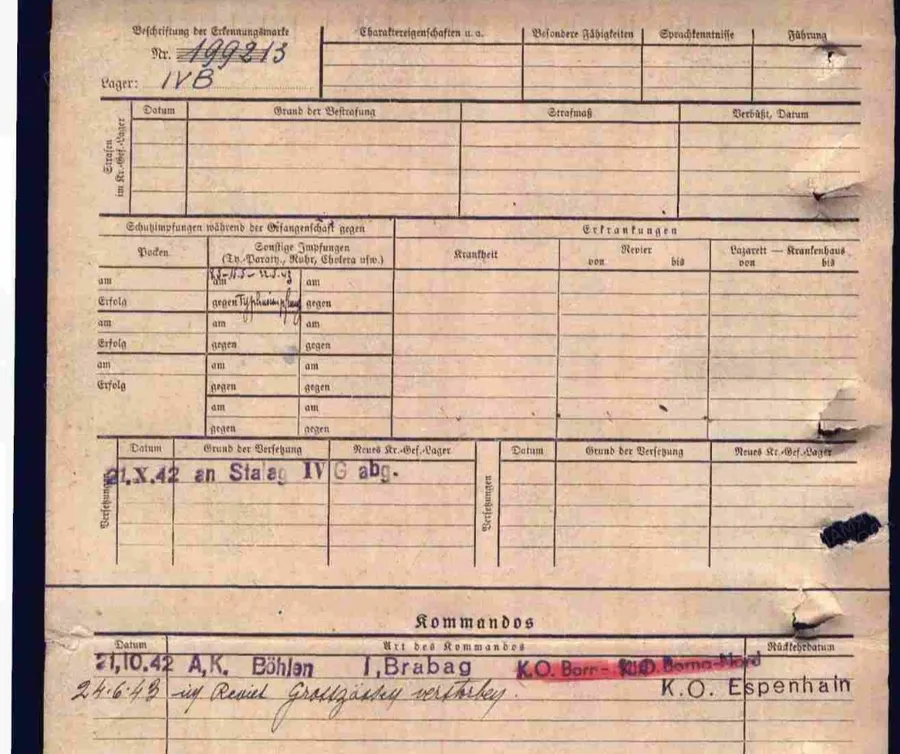 Beschriftung der Erkennungsmarke
Nr. 199213
Lager: IVB
Charaktereigenschaften u. a.
Besondere Fähigkeiten
Sprachkenntnisse
Führung
Strafen im Kr.-Gef.-Lager
Datum
Grund der Bestrafung
Strafmaß
Verbüßt, Datum
Schutzimpfungen während der Gefangenschaft gegen
Erkrankungen
Pocken
Sonstige Impfungen
(Ty.-Paraty., Ruhr, Cholera usw.)
Krankheit
Revier
von bis
Lazarett — Krankenhaus
von bis
am am am
Erfolg gegen Typhusimpfung gegen
am am am
Erfolg gegen gegen
am am am
Erfolg gegen gegen
am am
gegen gegen
Versetzungen
Datum Grund der Versetzung Neues Kr.-Gef.-Lager
21.X.42 an Stalag IV G abg.
Versetzungen
Datum Grund der Versetzung Neues Kr.-Gef.-Lager
Kommandos
Datum Art des Kommandos Rückkehrdatum
21.10.42 A.K. Böhlen I, Brabag K.O. Borna-Nord
24.6.43 im Revier verstorben. K.O. Espenhain